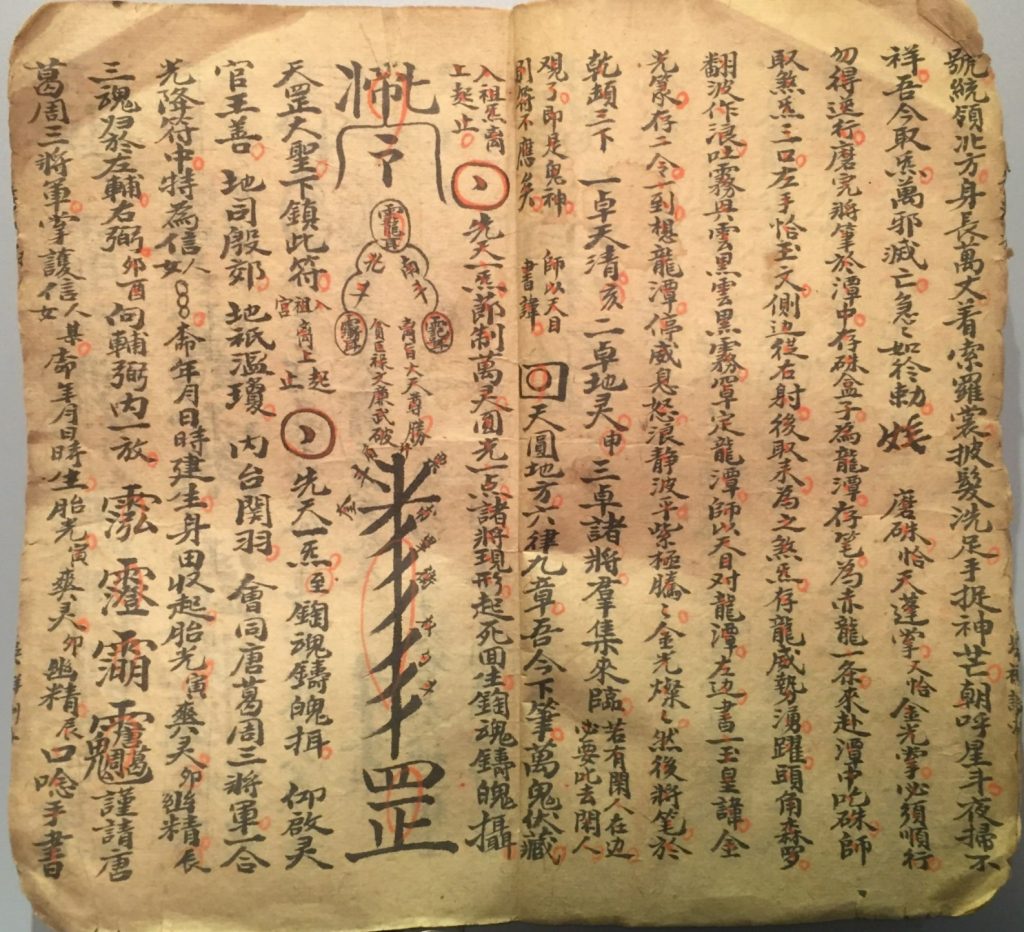 號統領北方身長萬丈着索羅裳披髮洗足手捉神芒朝呼星斗夜掃不
祥吾今取炁萬邪滅亡急〻如於勅 磨硃恰天蓬掌又恰金光掌必須順行
勿得逆行磨完將筆於潭中存硃盒子為龍潭存笔為赤龍一条來赴潭中吃硃師
取煞炁三口左手恰玉文側边從右射後取來為之煞炁存龍威勢湧躍頭角森罗
翻波作浪吐霧興雲黑雲黑霧罩定龍潭師以天目对龍潭左边書一玉皇諱金
光篆存二令一到想龍潭停威息怒浪静波平紫極騰〻金光燦〻然後將笔於
乾頡三下 一卓天清亥 二卓地灵申 三卓諸將羣集來臨 若有閑人在边
必要此去閑人
观了即是鬼神
引符不應矣 師以天目
書諱 天圓地方六律九章吾今下筆萬鬼伏藏
入祖炁离
上起止 先天一炁節制萬灵圓光一点諸將現形起死回生鍧魂鑄魄攝
雲龍
光 斗
南斗
离百大天尊勝
貪巨祿文廉武破
罡
天罡大聖下鎮此符 入祖离上起
宮 止 先天一炁至鍧魂鑄魄揖 仰啟灵
官王善 地司殷郊 地祇溫瓊 内台関羽 會同唐葛周三將軍一合
光降符中特為信人
女 8 命年月日時建生身田收起胎光寅爽灵卯幽精辰
三魂發左輔右弼卯酉向輔弼内一放 泓 澄 謹請唐
葛周三將軍掌護信人
女某命年月日時生胎光寅爽灵卯幽精辰口唸手書